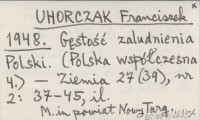 UHORCZAK Franciszek
1948. Gęstość zaludnienia
Polski. (Polska współczesna
4.) — Ziemia 27 (39), nr
2: 37-45, il.
M. in. powiat Nowy Targ.